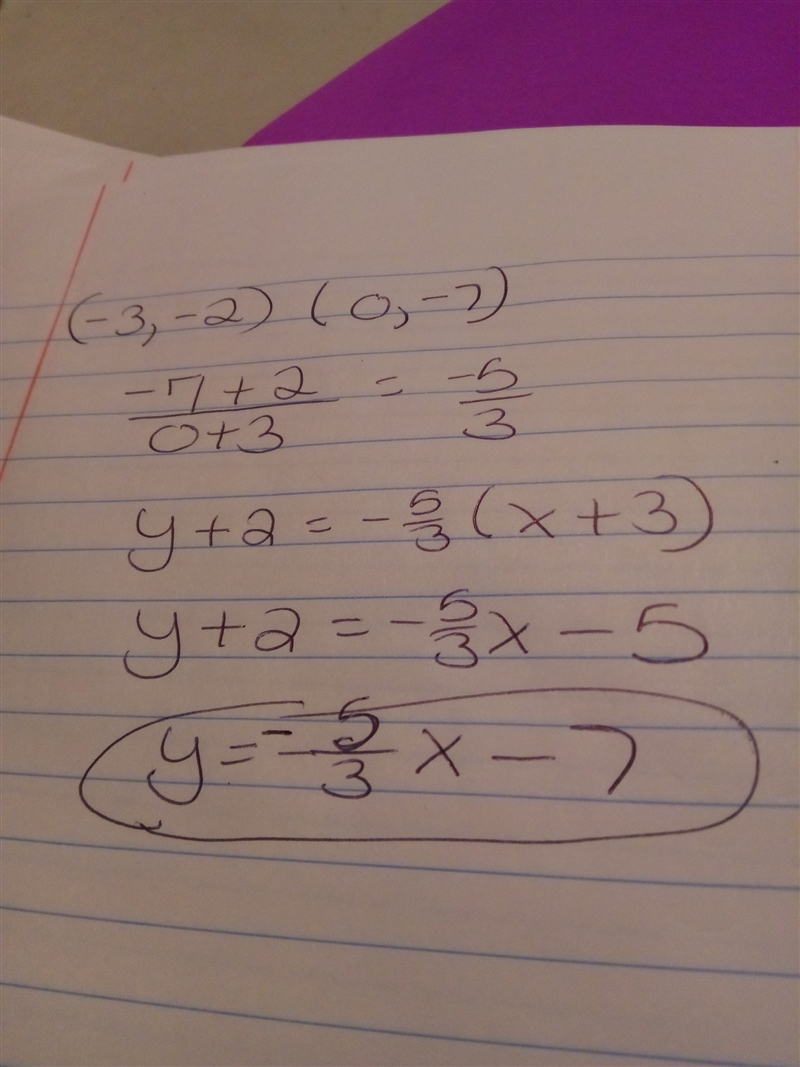 (-3, -2) (0, -7)
-7+2/0+3 = -5/3
y+2 = -5/3(x+3)
y+2 = -5/3x - 5
y = -5/3x - 7